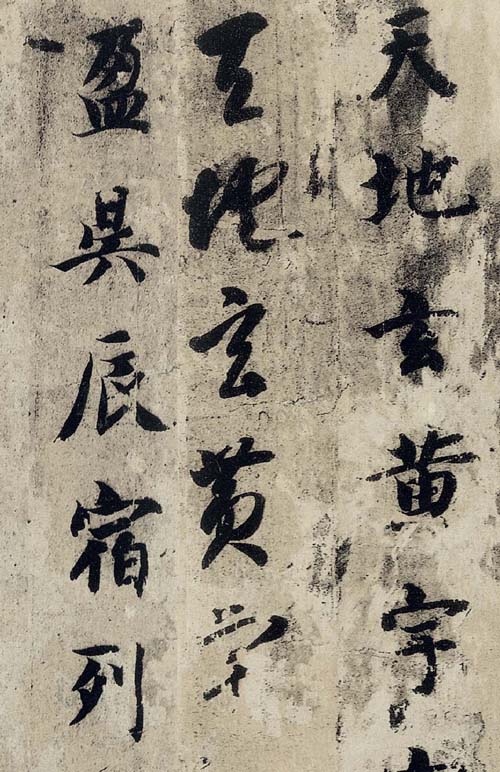 天地玄黃宇
天地玄黃宇
盈昃辰宿列